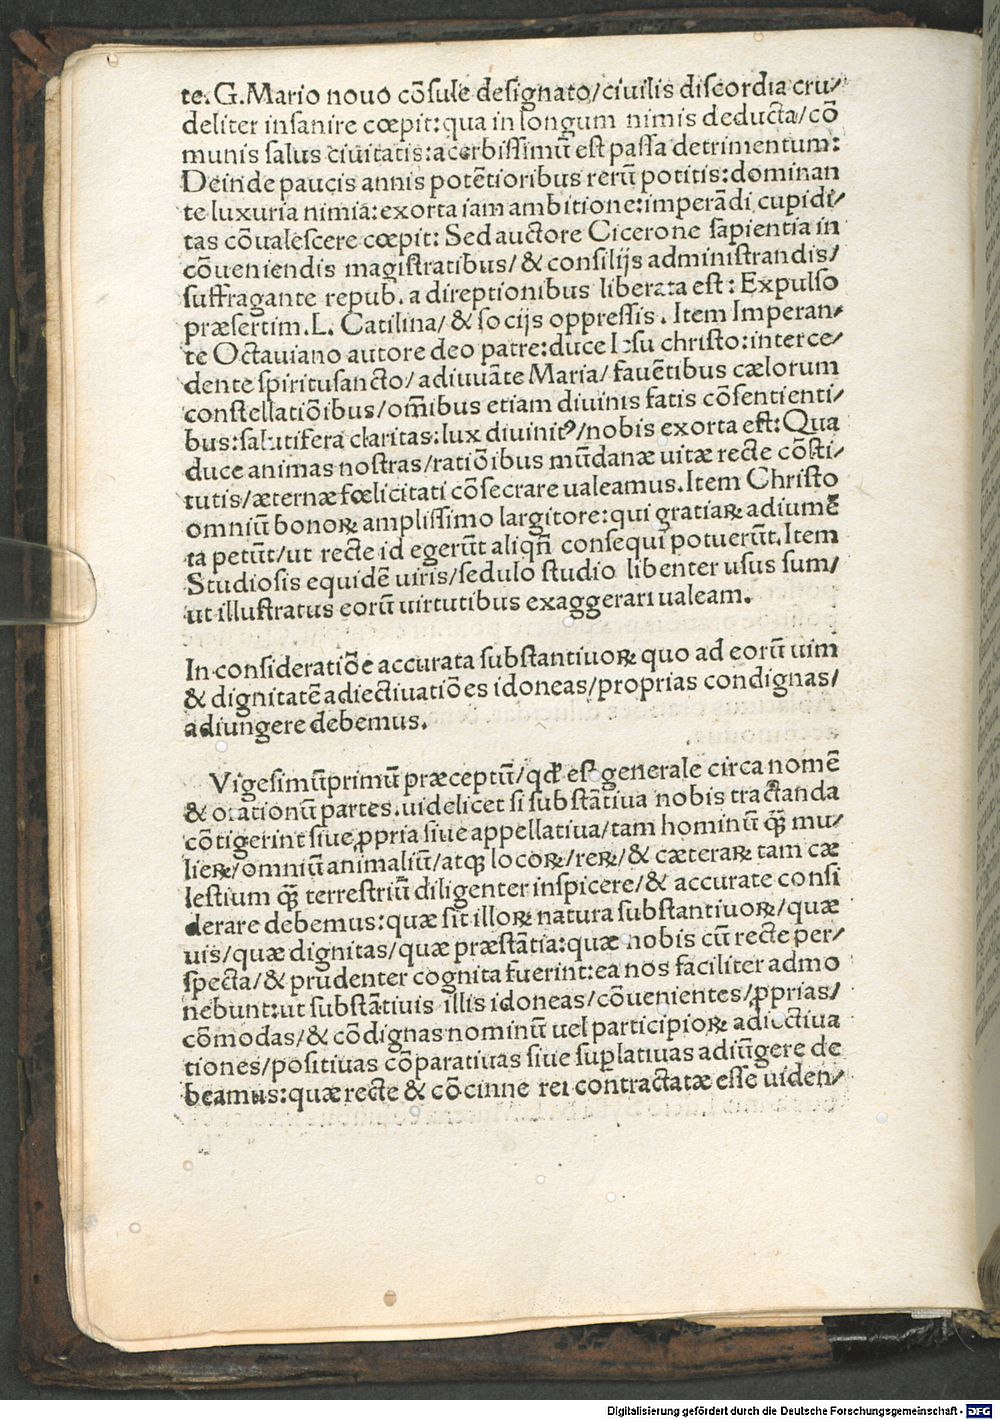 te. G. Mario novo cõsule designato/civilis discordia cru/
deliter insanire cœpit: qua in longum nimis deducta/cõ
munis salus ciuitatis: acerbissimũ est passa detrimentum:
Deinde paucis annis potẽtioribus rerũ potitis: dominan
te luxuria nimia: exorta iam ambitione: imperãdi cupidi/
tas cõualescere cœpit: Sed auctore Cicerone sapientia in
cõueniendis magistratibus/ & consilijs administrandis/
suffragante repub. a direptionibus liberata est: Expulso
præsertim. L. Catilina/ & socijs oppressis. Item Imperan/
te Octauiano autore deo patre: duce Iesu christo: interce/
dente spiritusancto/ adiuuãte Maria/ fauẽtibus cælorum
constellatiõibus/om̃ibus etiam diuinis fatis cõsentienti/
bus: salutifera claritas: lux diuinitꝰ/nobis exorta est: Qua
duce animas nostras/ratiõibus mũdanæ uitæ recte cõsti/
tutis/æternæ fœlicitati cõsecrare ualeamus. Item Christo
omniũ bonoꝝ amplissimo largitore: qui gratiaꝝ adiumẽ
ta petũt/ut recte id egerũt aliqñ consequi potuerũt. Item
Studiosis equidẽ uiris/sedulo studio libenter usus sum/
ut illustratus eorũ uirtutibus exaggerari ualeam.
In consideratiõe accurata substantiuoꝝ quo ad eorũ uim
& dignitatẽ adiectiuatiões idoneas/proprias condignas/
adiungere debemus.
Vigesimũprimũ præceptũ/qđ est generale circa nomẽ
& orationũ partes. uidelicet si substãtiua nobis tractanda
cõtigerint siue ꝓpria siue appellatiua/tam hominũ q̃ mu/
lieꝝ/omniũ animaliũ/atqꝫ locoꝝ/reꝝ/& cæteraꝝ tam cæ
lestium q̃ terrestriũ diligenter inspicere/& accurate consi
derare debemus: quæ sit illoꝝ natura substantiuoꝝ/quæ
uis/quæ dignitas/quæ præstãtia: quæ nobis cũ recte per/
specta/& prudenter cognita fuerint: ea nos faciliter admo
nebunt: ut substãtiuis illis idoneas/cõuenientes/ꝓprias/
cõmodas/& cõdignas nominũ uel participioꝝ adiectiua
tiones/positiuas cõparatiuas siue suꝑlatiuas adiũgere de
beamus: quæ recte & cõcinne rei contractatæ esse uiden/
Digitalisierung gefördert durch die Deutsche Forschungsgemeinschaft - DFG